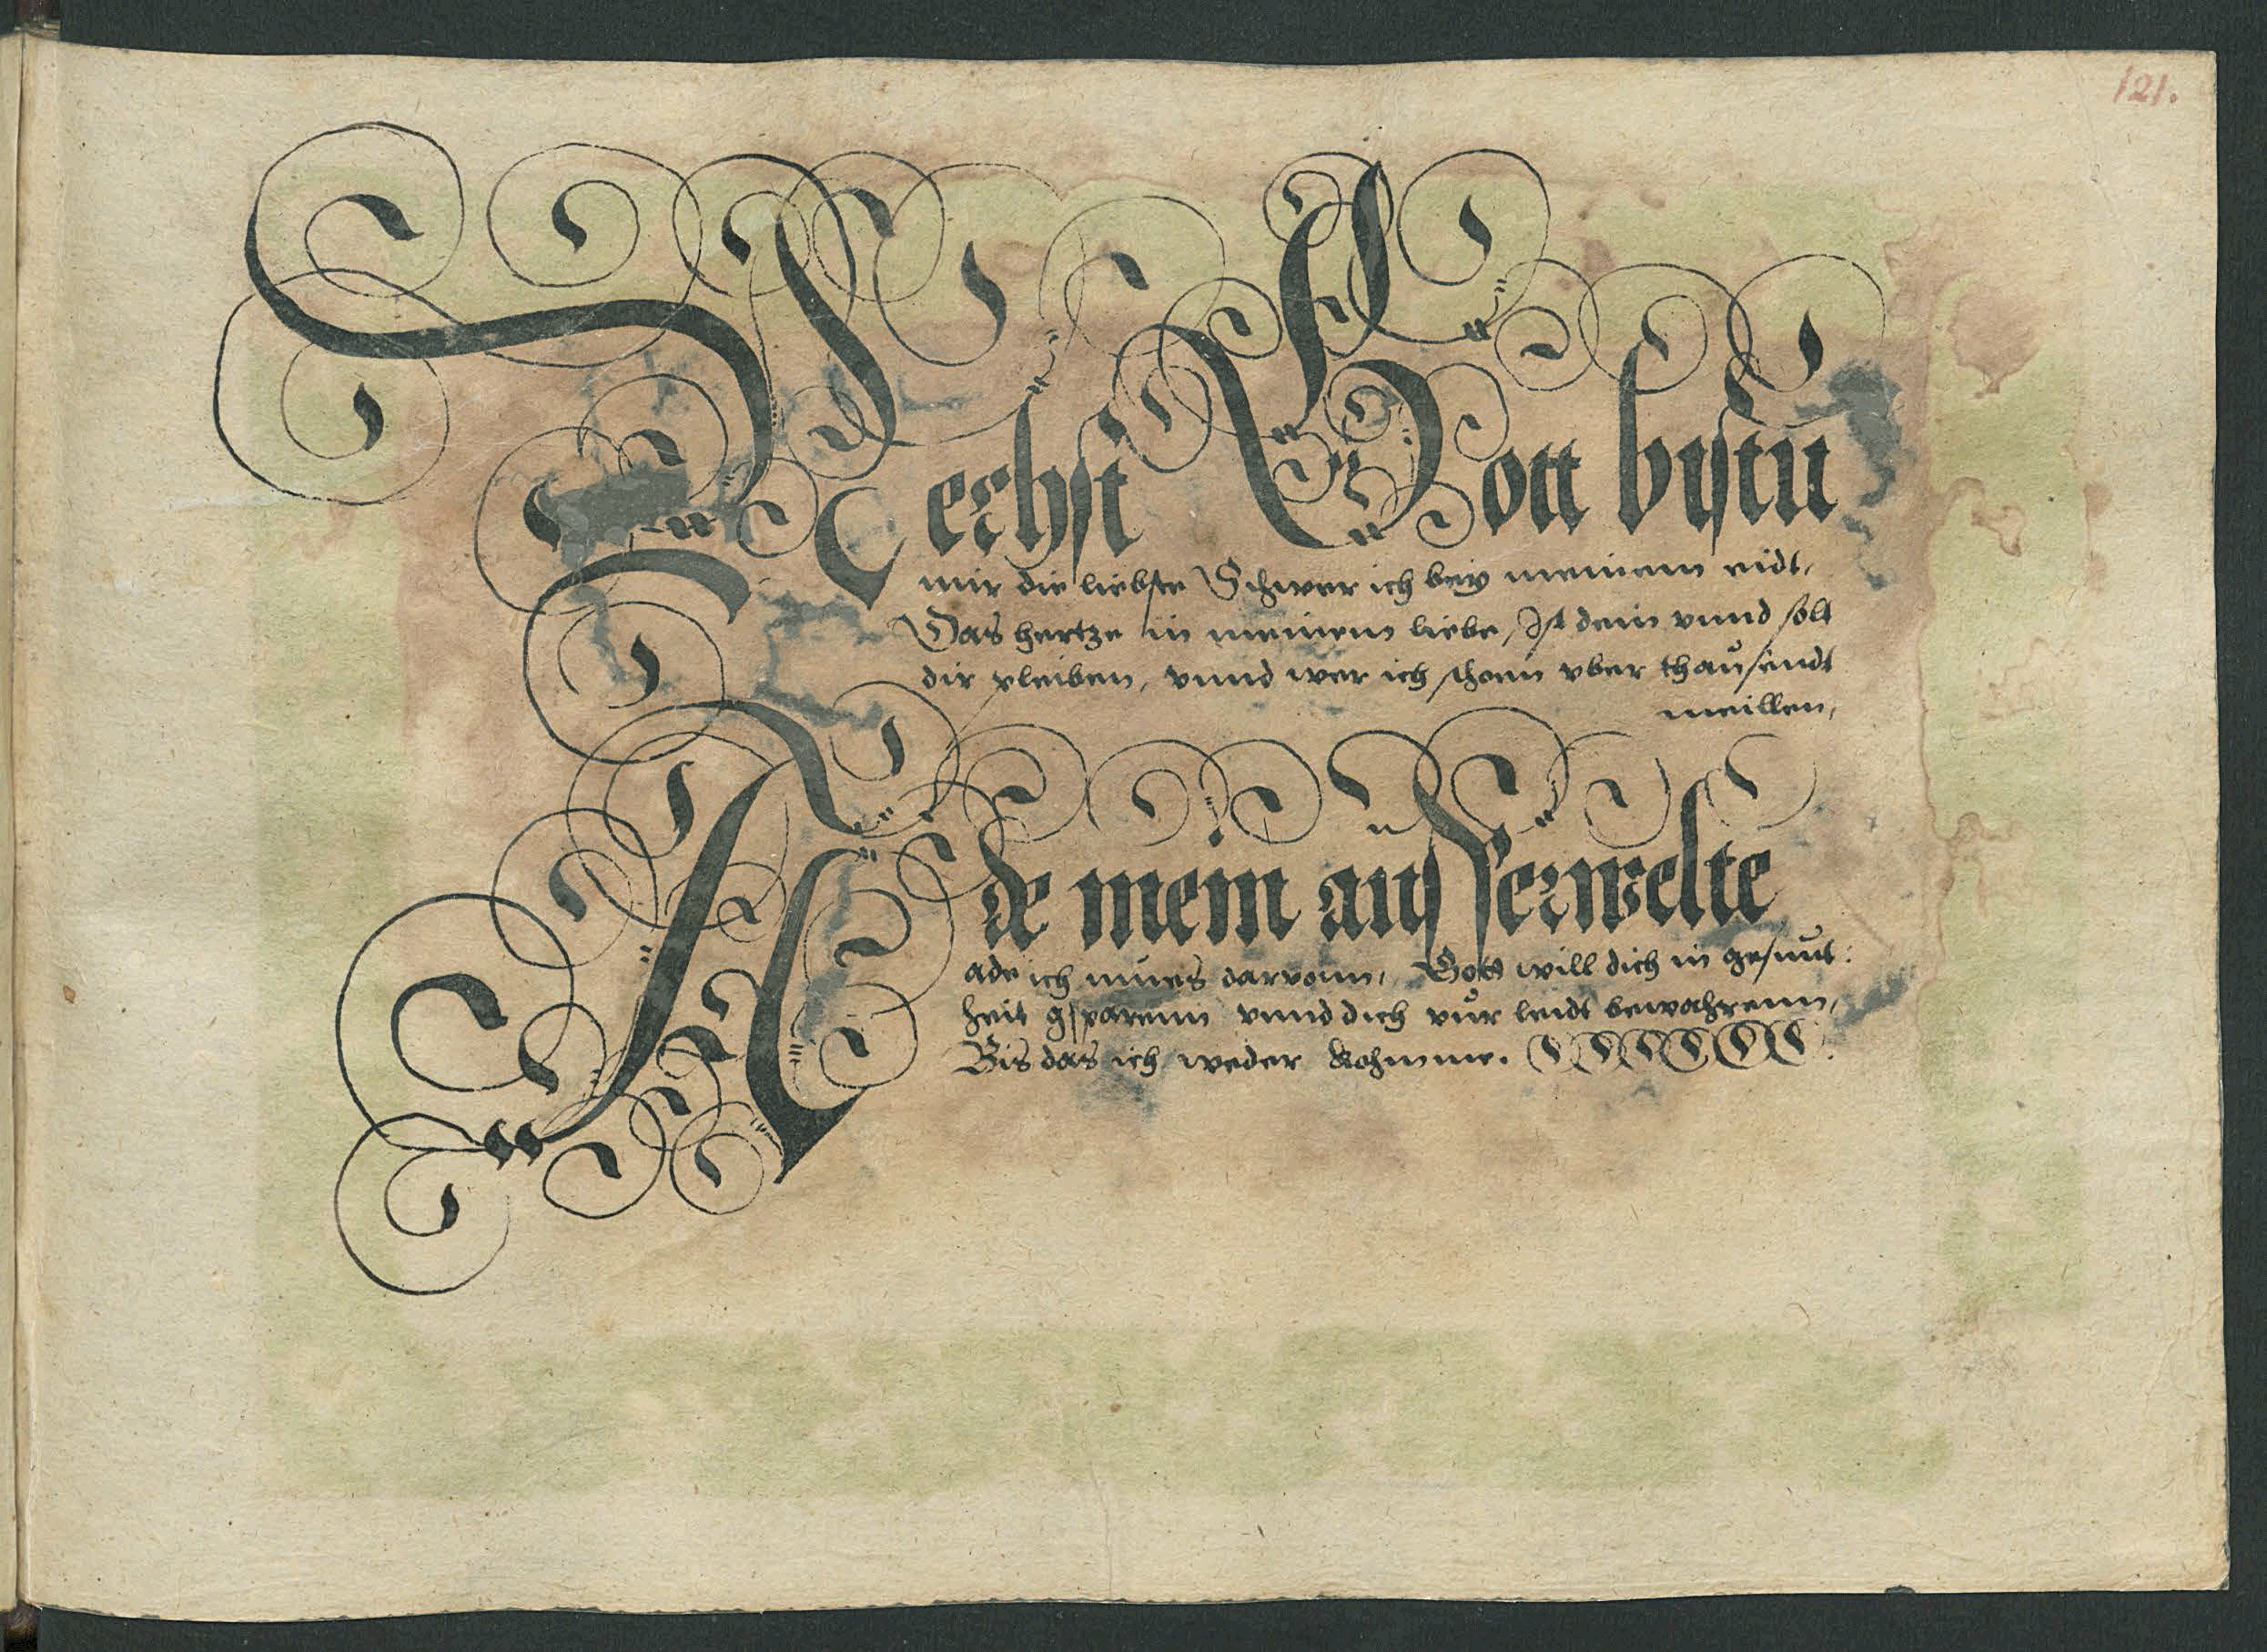 121.
Nechst Gott bistu
mir die liebste Schwer ich beÿ meinem eidt,
Das hertze in meinem liebe, Ist dein vnnd solt
dir pleiben, vnnd wer ich schonn vber thausendt
meillen,
Ade mein ausserwelte
ade ich mues darvonn, Gott will dich in gesunt:
heit gsparenn vnnd dich vur leidt bewahrenn,
Bis das ich weder kohmme.